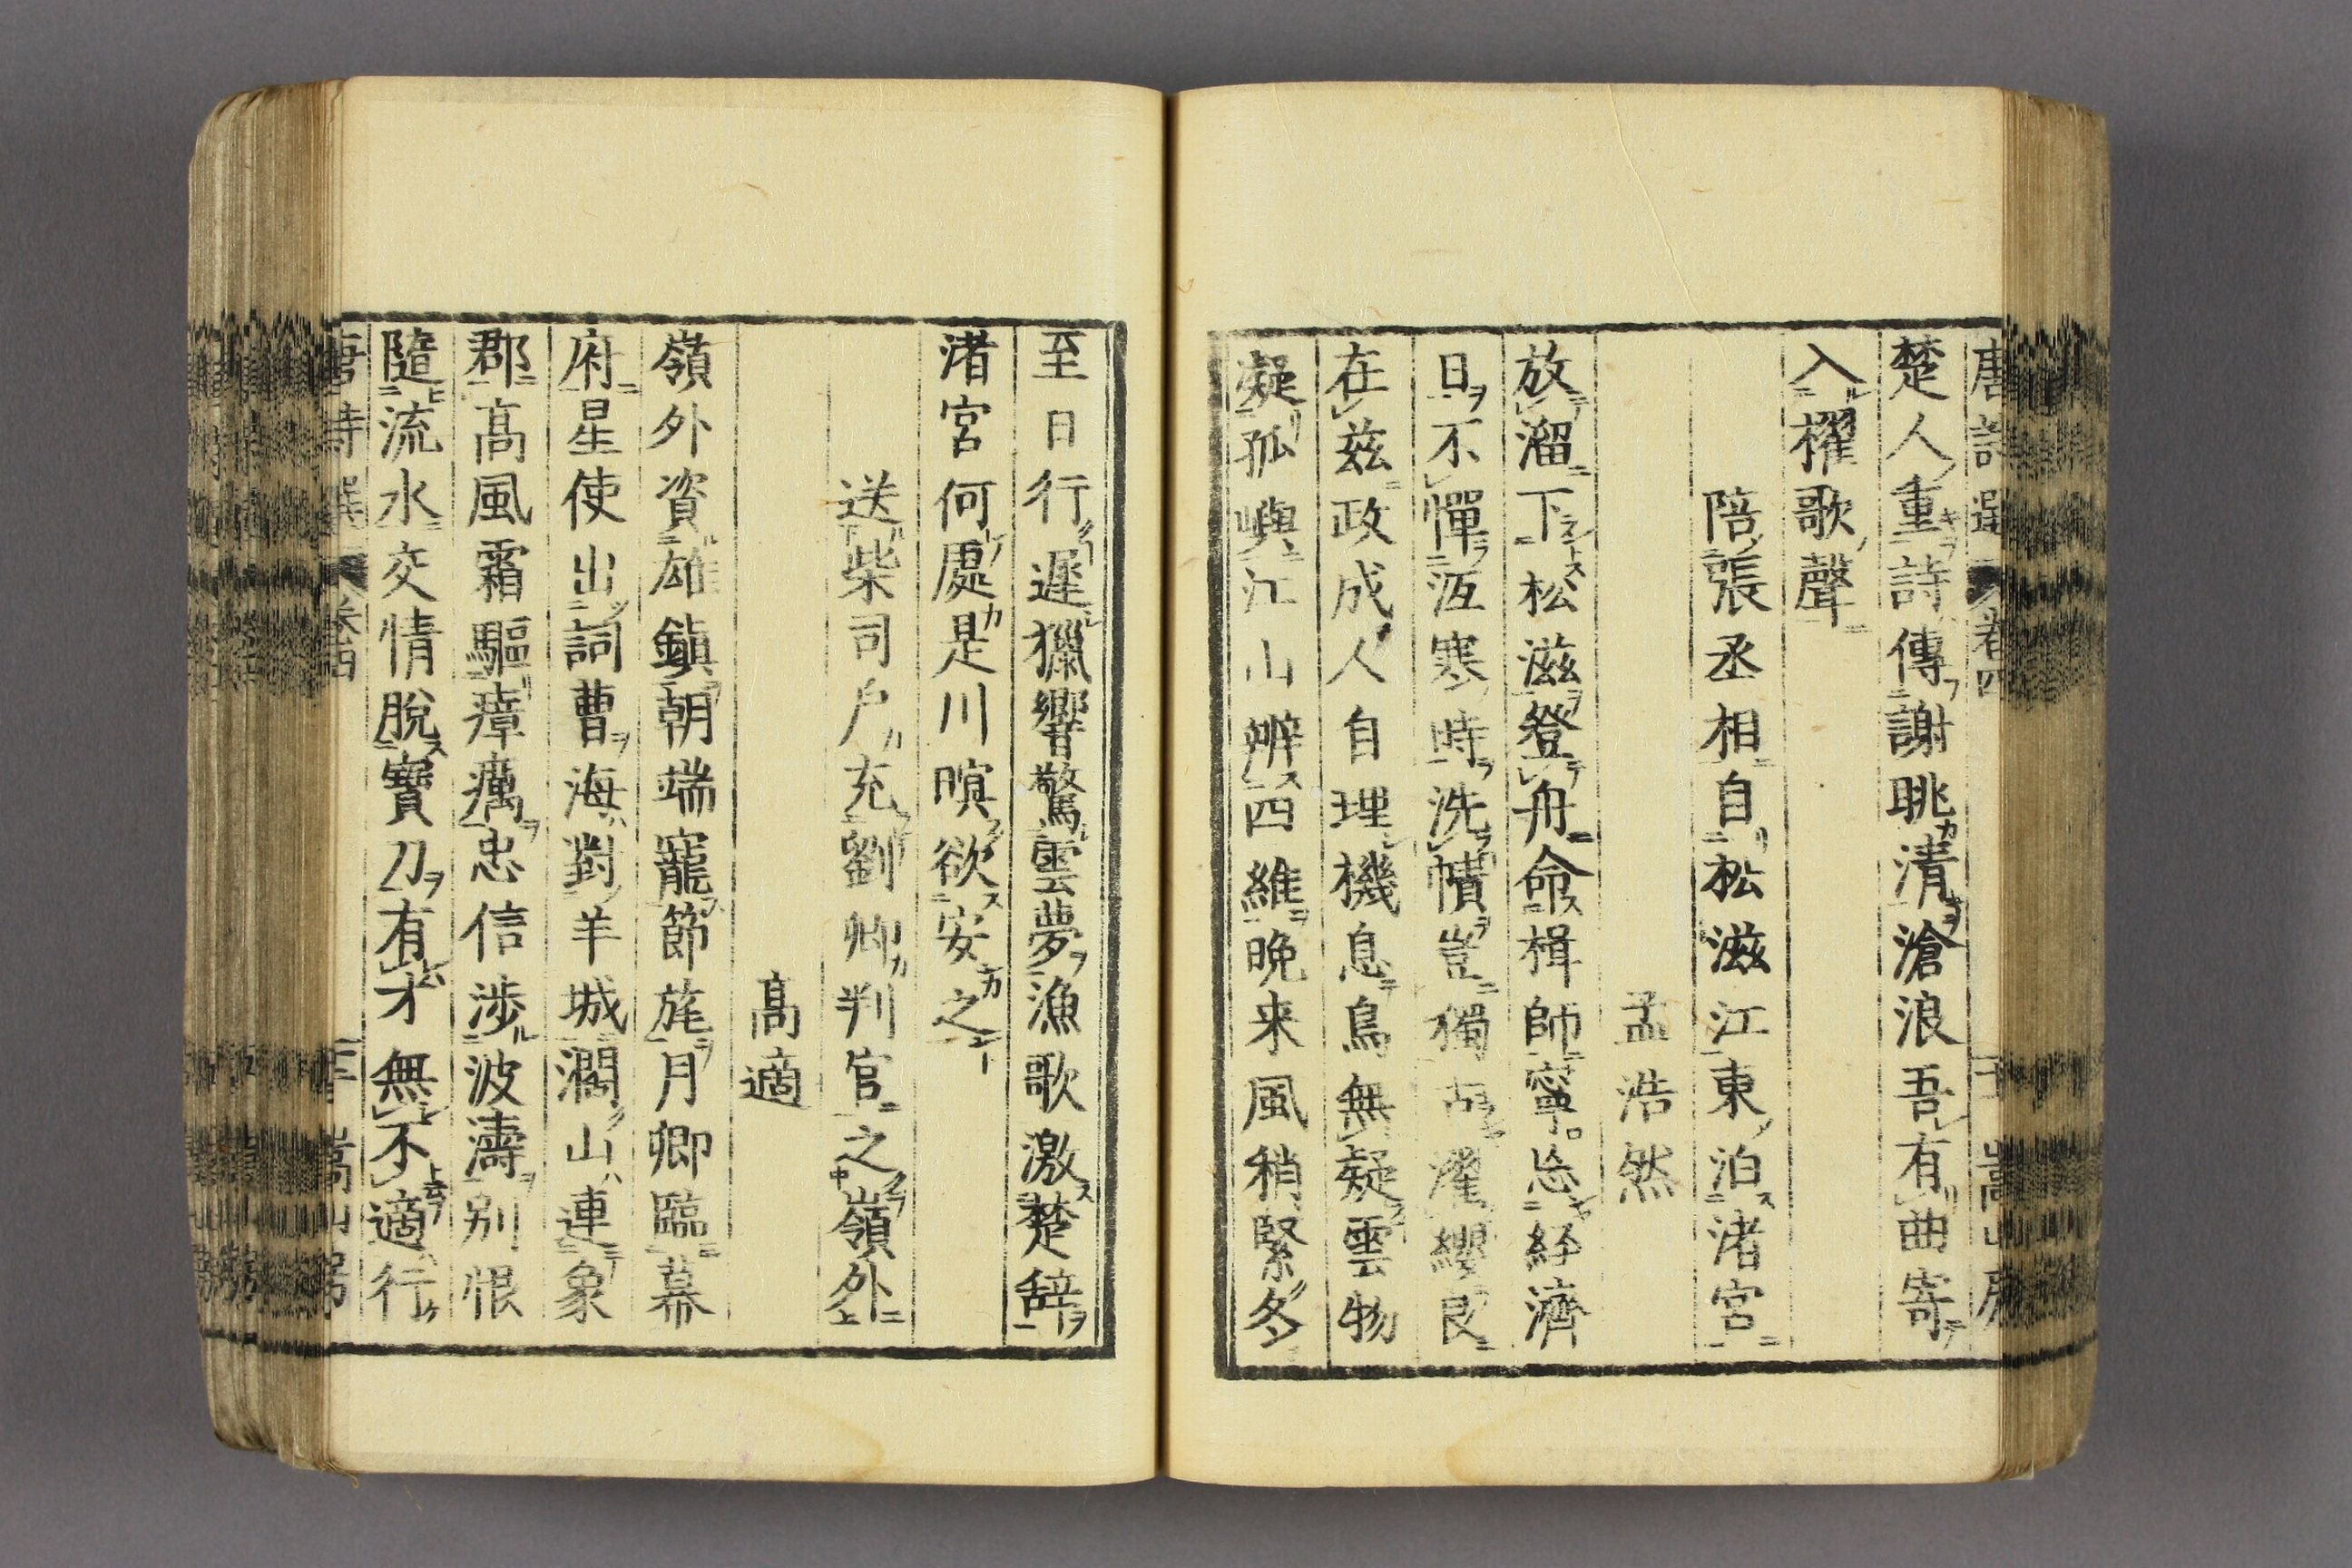 唐詩選 卷四 嵩山房
楚人重詩傳謝眺清滄浪吾有曲寄
入櫂歌聲
陪張丞相自松滋江東泊渚宮
孟浩然
放溜下松滋登舟命楫師寧忘経濟
日不憚沍寒時洗幘豈獨古濯纓良
在兹政成人自理機息鳥無疑雲物
凝孤嶼江山辨四維晚来風稍緊冬
至日行遲獵響驚雲夢漁歌激楚辭
渚宮何處是川暝欲安之
送柴司戶充劉卿判官之嶺外
髙適
嶺外資雄鎮朝端寵節旄月卿臨幕
府星使出詞曹海對羊城濶山連象
郡髙風霜驅瘴癘忠信涉波濤別恨
隨流水交情脫寶刀有才無不適行
唐詩選 卷四 嵩山房